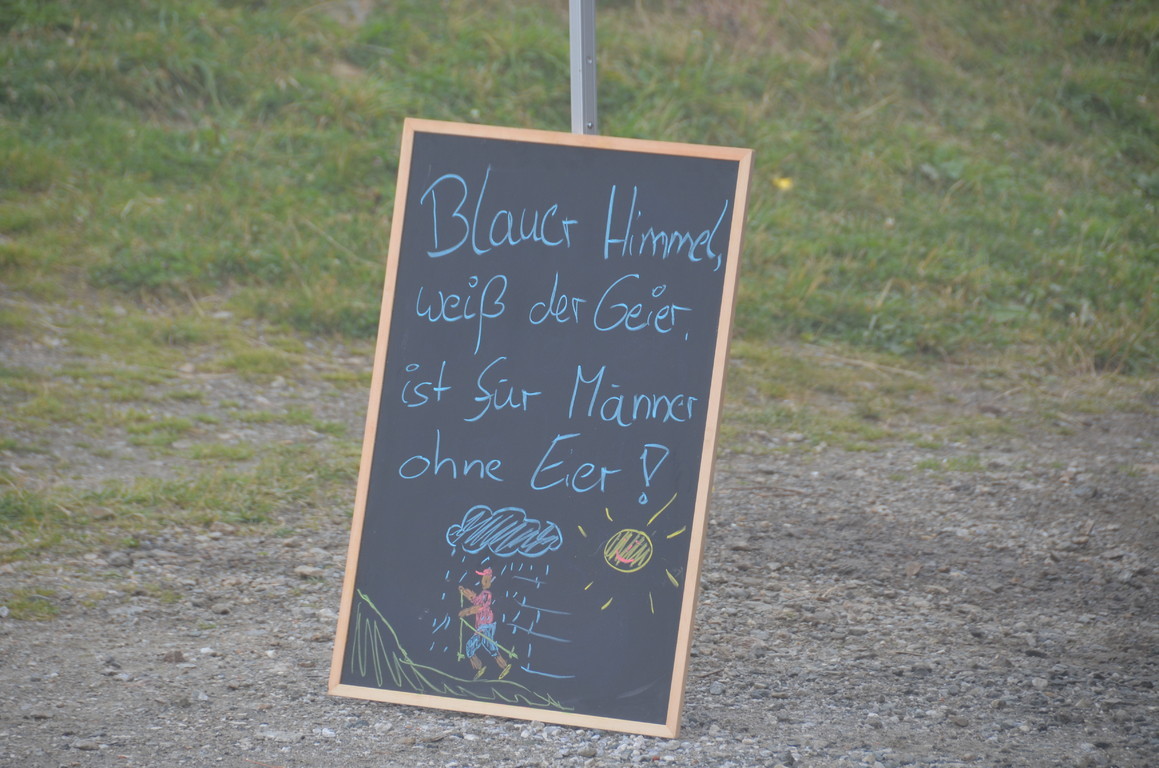 Blauer Himmel,
weiß der Geier,
ist für Männer
ohne Eier!